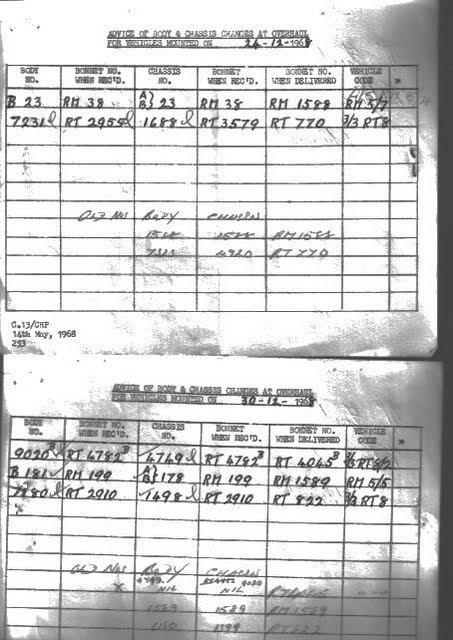 ADVICE OF BODY & CHASSIS CHANGES AT OVERHAUL
FOR VEHICLES MOUNTED ON 24-12-1968
BODY NO. BONNET NO. WHEN REC'D. CHASSIS NO. BONNET WHEN REC'D. BONNET NO. WHEN DELIVERED VEHICLE CODE
B 23 RM 38 A} B} 23 RM 38 RM 1588 RM 5/7
7231 l RT 2955 l 1688 l RT 3579 RT 770 3/3 RT8
OLD NOS BODY CHASSIS
RM 1588
4920 RT 770
C.13/CHP
14th May, 1968
253
ADVICE OF BODY & CHASSIS CHANGES AT OVERHAUL
FOR VEHICLES MOUNTED ON 30-12-1968
BODY NO. BONNET NO. WHEN REC'D. CHASSIS NO. BONNET WHEN REC'D. BONNET NO. WHEN DELIVERED VEHICLE CODE
9020 B RT 4782 B 4749 l RT 4782 B RT 4045 B RT8/2
B 181 RM 199 A} B} 178 RM 199 RM 1589 RM 5/5
RT 2910 1498 l RT 2910 RT 822 3/3 RT8
OLD NOS BODY CHASSIS
X NIL NIL
1589 1589 RM 1589